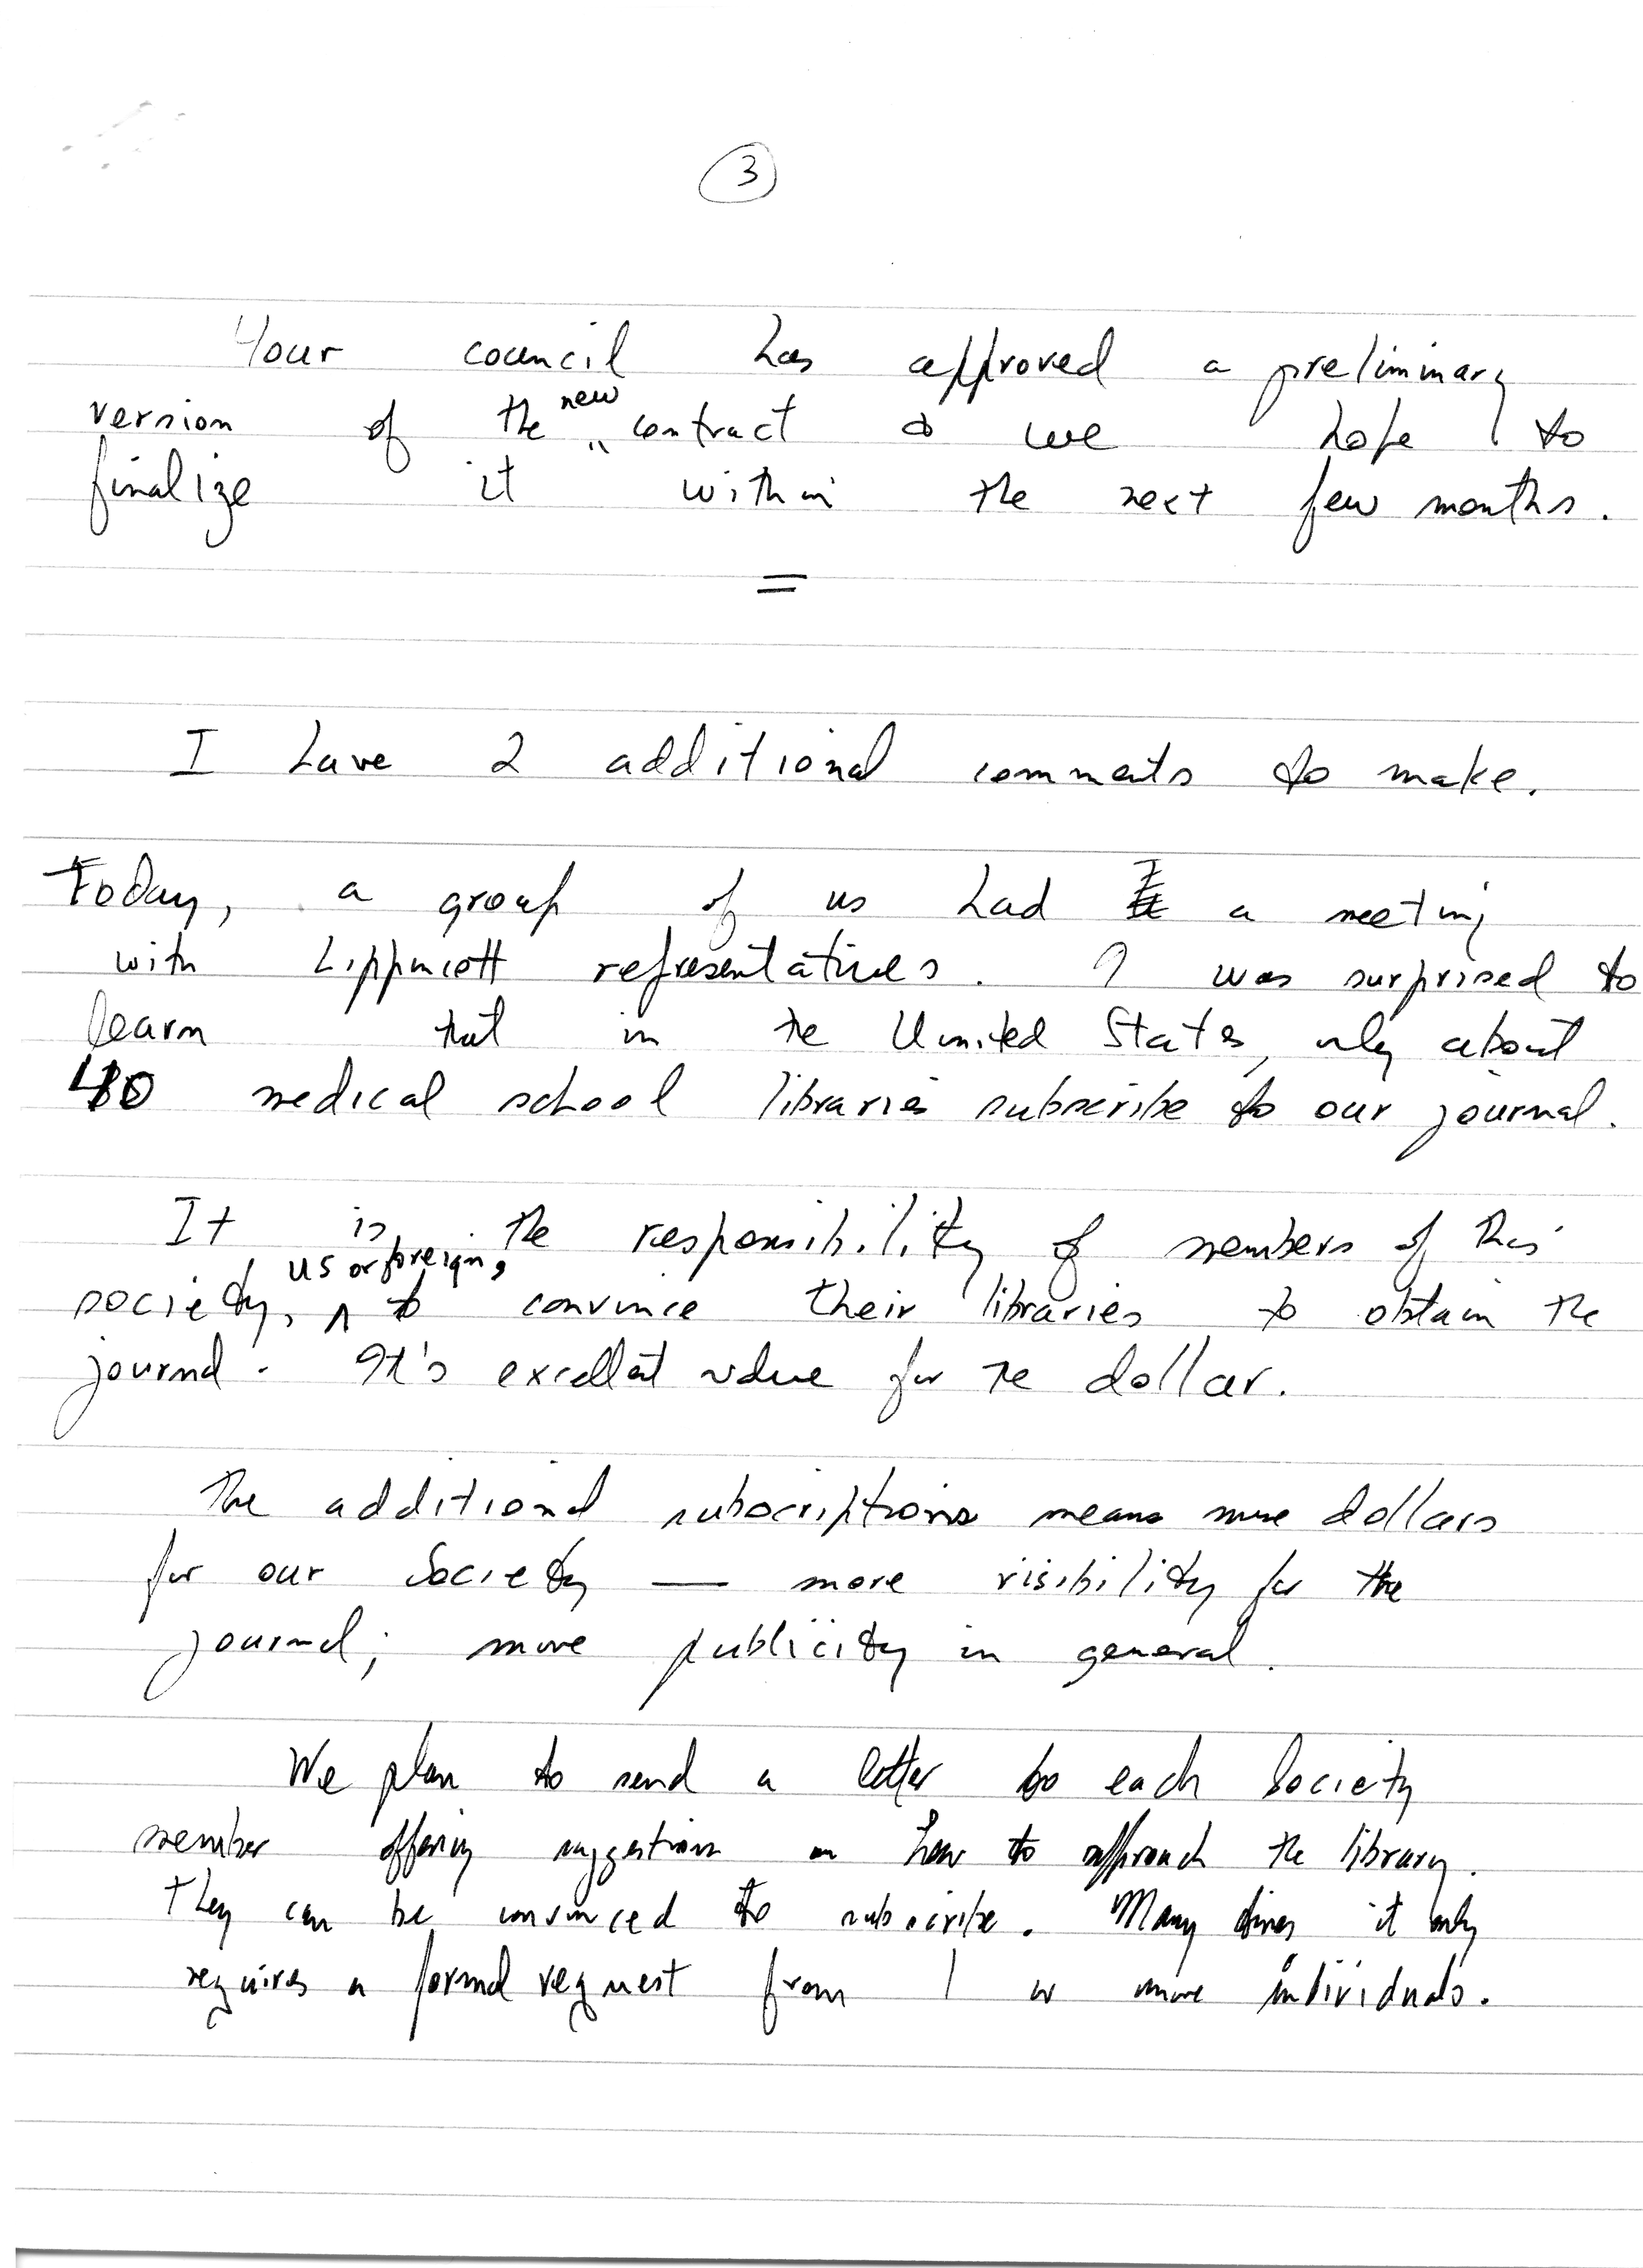 3
Your council has approved a preliminary
version of the new contract & we hope to
finalize it within the next few months.
=
I have 2 additional comments to make.
Today, a group of us had a meeting
with Lippincott representatives. I was surprised to
learn that in the United States, only about
medical school libraries subscribe to our journal.
It is the responsibility of members of this
society, US or foreign, to convince their libraries to obtain the
journal. It's excellent value for the dollar.
The additional subscriptions means more dollars
for our Society — more visibility for the
journal; more publicity in general.
We plan to send a letter to each Society
member offering suggestions on how to approach the library.
They can be convinced to subscribe. Many times it only
requires a formal request from 1 or more individuals.